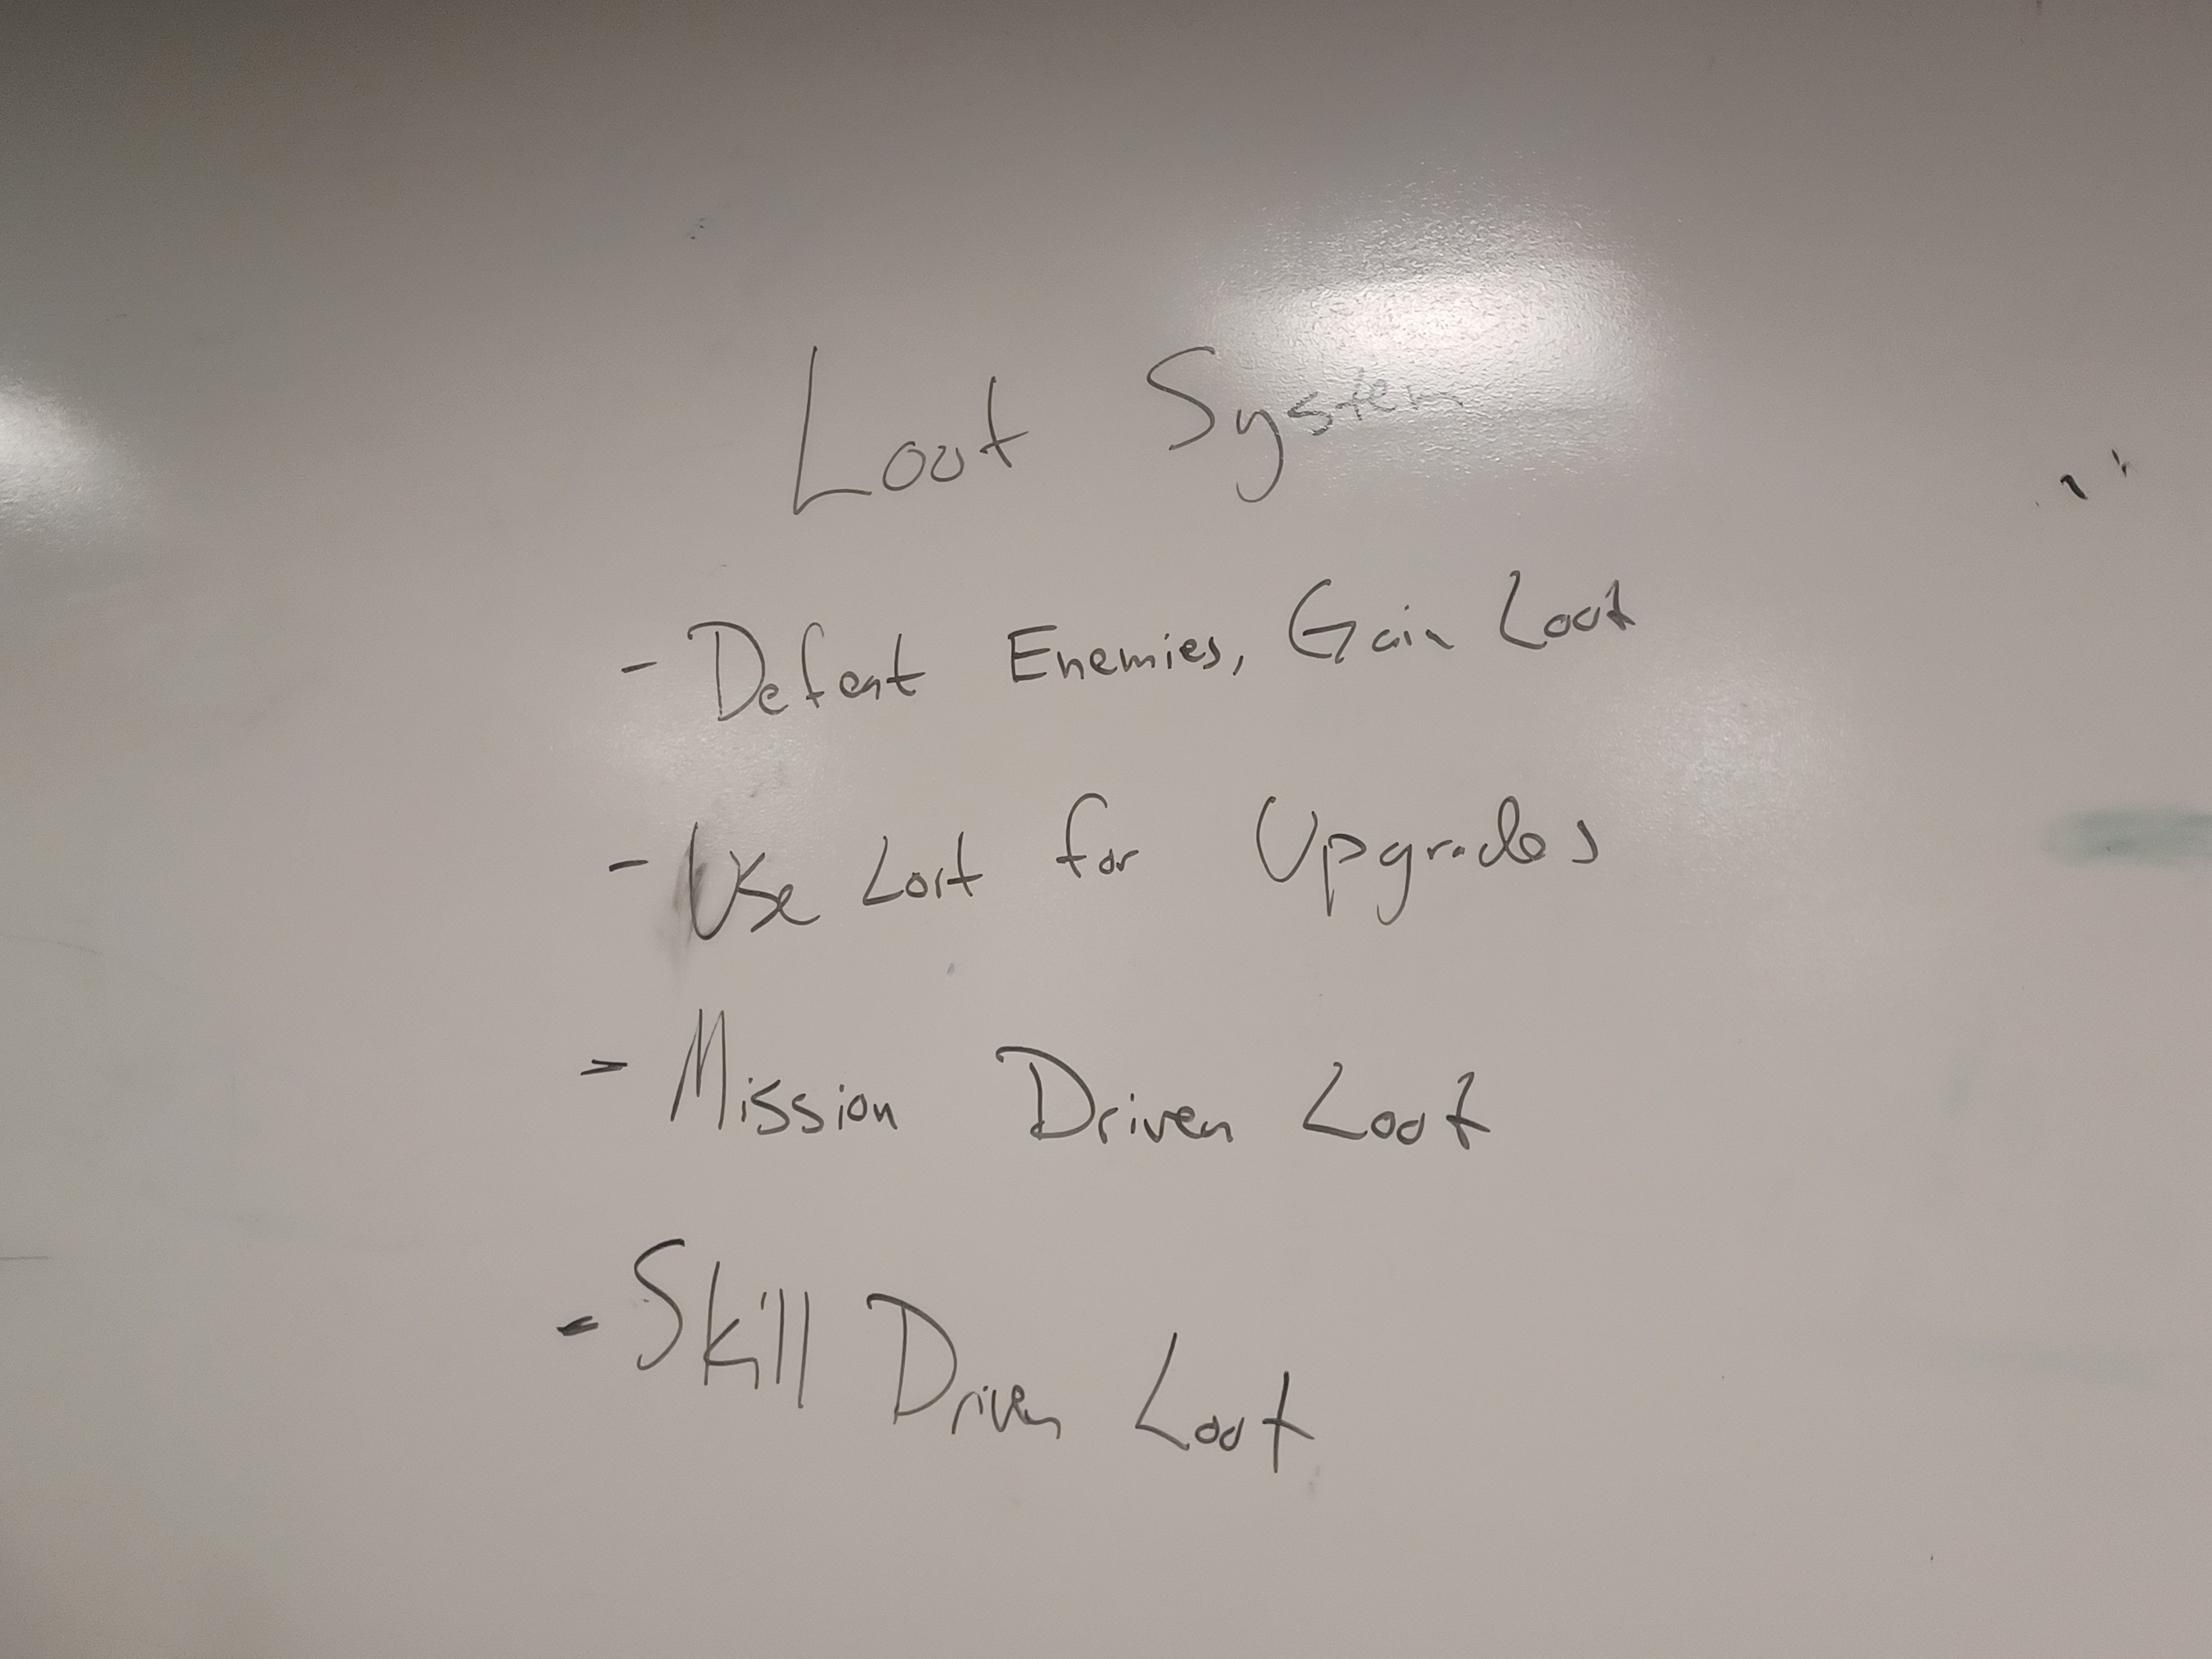 Loot System
- Defeat Enemies, Gain Loot
- Use Loot for Upgrades
- Mission Driven Loot
- Skill Driven Loot